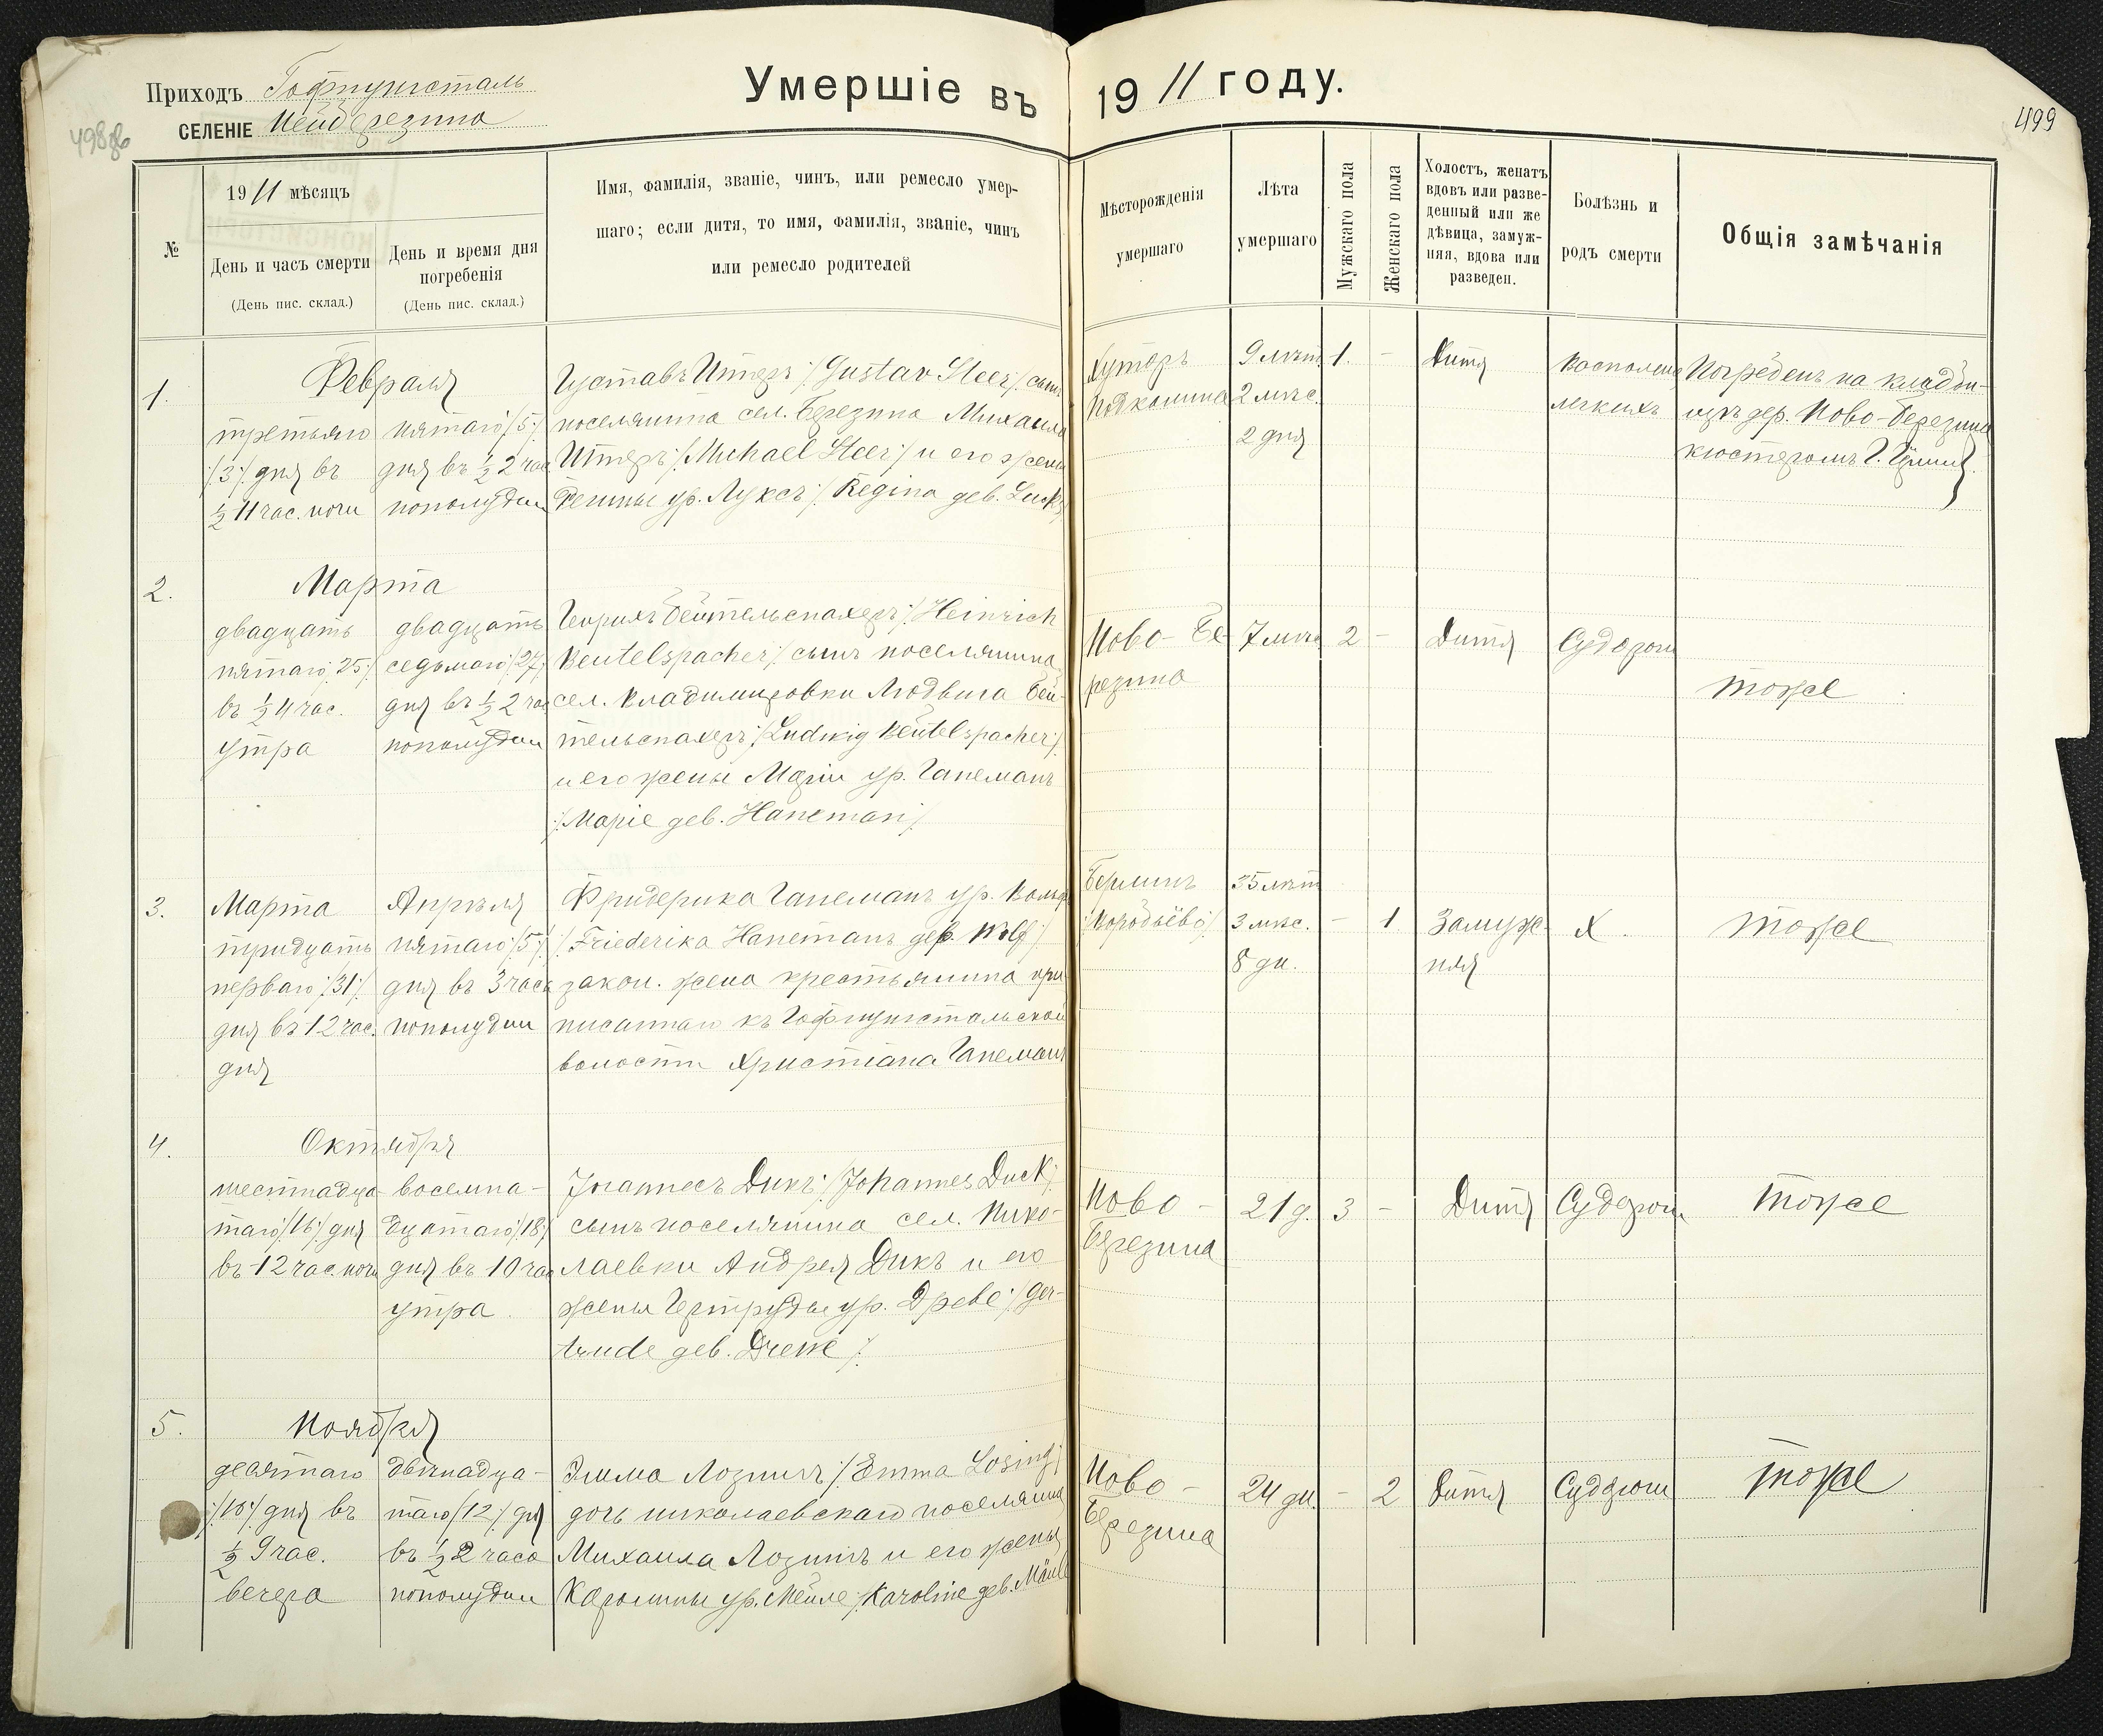 Приходъ Гофнунгсталь
СЕЛЕНІЕ Нейберезина
Умершіе въ 1911 году.
498об
499
№
1911 мѣсяцъ
День и часъ смерти
(День пис. склад.)
День и время дня
погребенія
(День пис. склад.)
Имя, фамилія, званіе, чинъ, или ремесло умер-
шаго; если дитя, то имя, фамилія, званіе, чинъ
или ремесло родителей
Мѣсторожденія
умершаго
Лѣта
умершаго
Мужскаго пола
Женскаго пола
Холостъ, женатъ
вдовъ или разве-
денный или же
дѣвица, замуж-
няя, вдова или
разведен.
Болѣзнь и
родъ смерти
Общія замѣчанія
1.
Февраля
третьяго
/:3:/ дня въ
½ 11 час. ночи
пятаго /:5:/
дня въ ½ 2 час
пополудни
Густавъ Штеръ /: Gustav Steer :/ сынъ
поселянина сел. Березина Михаила
Штеръ /: Michael Steer :/ и его жены
Регины ур. Луксъ /: Regina geb. Lucks
Хуторъ
9 лѣт.
2 мѣс.
2 дня
1.
-
Дитя
легкихъ
Погребенъ на кладби-
щѣ дер. Ново-Березина
кюстеромъ Г.
2.
Марта
двадцать
пятаго /:25:/
въ ½ 4 час.
утра
двадцать
седьмаго /:27:/
дня въ ½ 2 час
пополудни
Бейтельспахеръ /: Heinrich
Beutelspacher :/ сынъ поселянина
сел. Владимировки Людвига Бей-
тельспахеръ /: Ludwig Beutelspacher :/
и его жены Маріи ур. Ганеманъ
/: Марie geb. Haneman :/
Ново-Бе-
резина
7 мѣс.
2
-
Дитя
Судороги
тоже
3.
Марта
тридцать
перваго /:31:/
дня въ 12 час.
дня
Апрѣля
пятаго /:5:/
дня въ 3 часа
пополудни
Фридерика Ганеманъ ур. Вольф
/: Friederika Hanemanъ geb. Wolf :/
закон. жена крестьянина при-
писаннаго къ Гофнунгстальской
волости Христіана Ганеманъ
35 лѣт
3 мѣс.
8 дн.
-
1
Замуж-
няя
X.
тоже
4.
Октября
шестнадца-
таго /:16:/ дня
въ 12 час. ночи
восемна-
дцатаго /:18:/
дня въ 10 час
утра.
Іоаннесъ Дикъ /: Johannes Duck :/
сынъ поселянина сел. Нико-
лаевки Андрея Дикъ и его
жены Гертруды ур. Древе /: Ger-
trude geb. Drewe :/
Ново-
Березина
21 д.
3
-
Дитя
Судороги
Тоже
5.
Ноября
десятаго
/:10:/ дня въ
½ 9 час.
вечера
двѣнадца-
таго /:12:/ дня
въ ½ 2 часа
пополудни
Эмма Лозингъ /: Emma Losing :/
дочь николаевскаго поселянина
Михаила Лозингъ и его жены
Каролины ур. Мейле /: Karoline geb. Mäule
Ново-
Березина
24 дн.
-
2
Дитя
Судороги
тоже